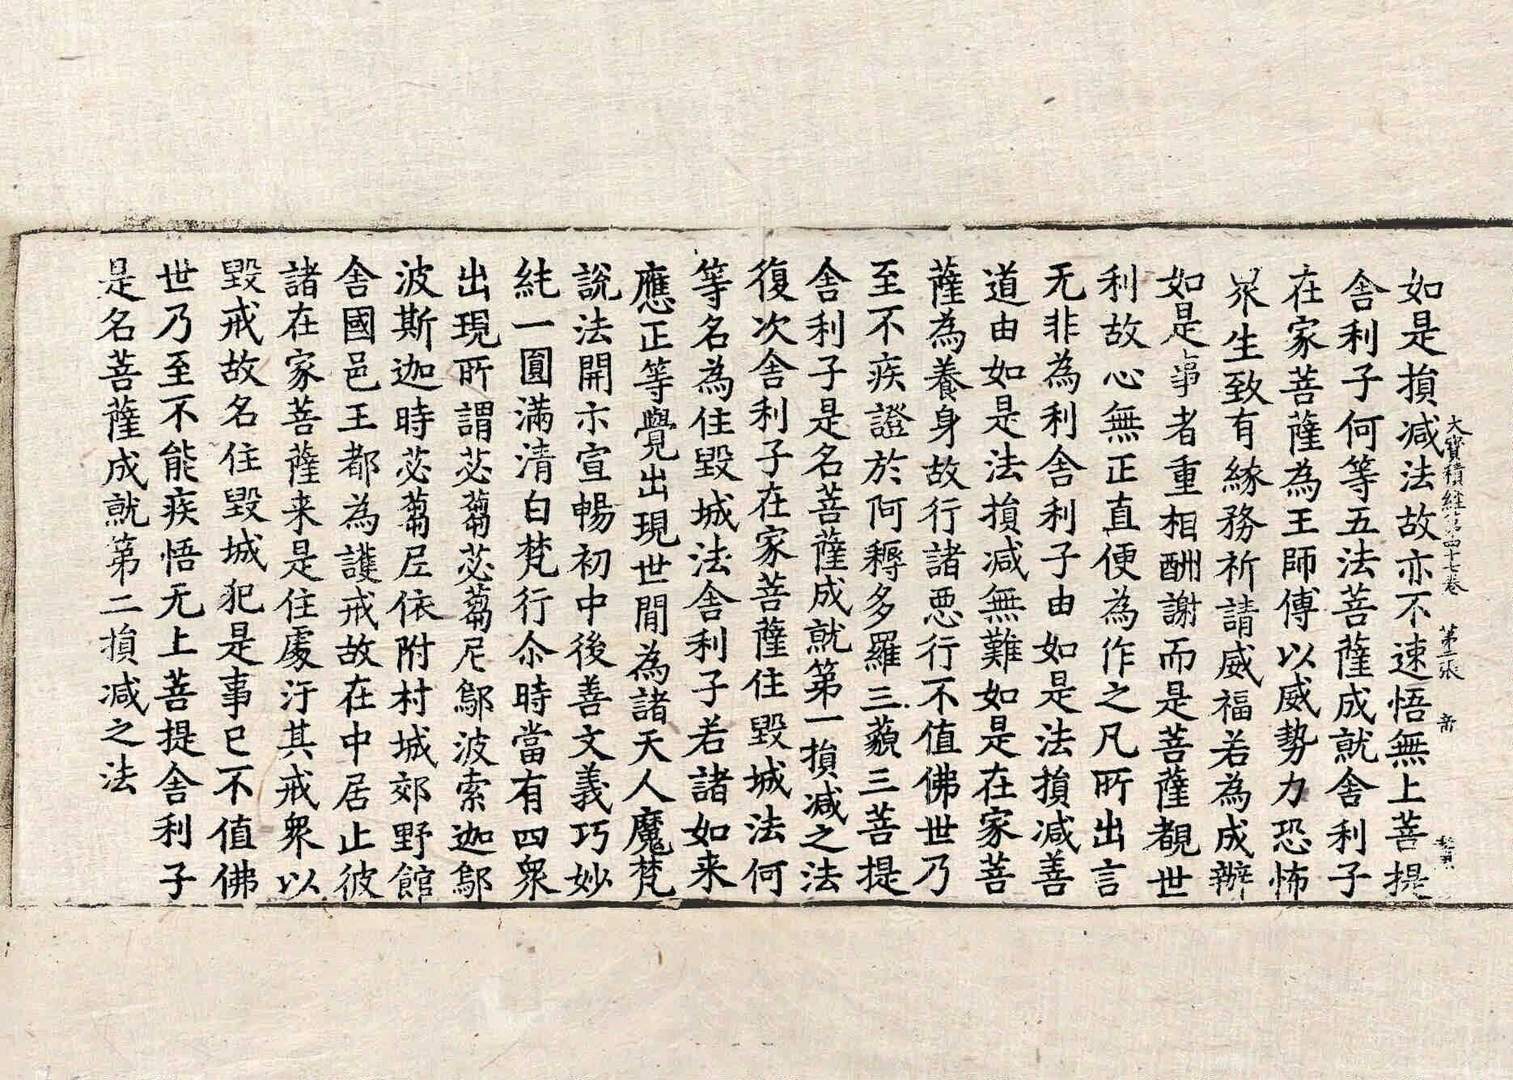 大寶積經第四十七卷 第二張 帝
如是損減法故亦不速悟無上菩提
舍利子何等五法菩薩成就舍利子
在家菩薩為王師傅以威勢力恐怖
眾生致有緣務祈請威福若為成辦
如是事者重相酬謝而是菩薩覩世
利故心無正直便為作之凡所出言
无非為利舍利子由如是法損減善
道由如是法損減無難如是在家菩
薩為養身故行諸惡行不值佛世乃
至不疾證於阿耨多羅三藐三菩提
舍利子是名菩薩成就第一損減之法
復次舍利子在家菩薩住毀城法何
等名為住毀城法舍利子若諸如来
應正等覺出現世間為諸天人魔梵
說法開示宣暢初中後善文義巧妙
純一圓滿清白梵行尒時當有四眾
出現所謂苾蒭苾蒭尼鄔波索迦鄔
波斯迦時苾蒭尼依附村城郊野館
舍國邑王都為護戒故在中居止彼
諸在家菩薩来是住處汙其戒眾以
毀戒故名住毀城犯是事已不值佛
世乃至不能疾悟无上菩提舍利子
是名菩薩成就第二損減之法